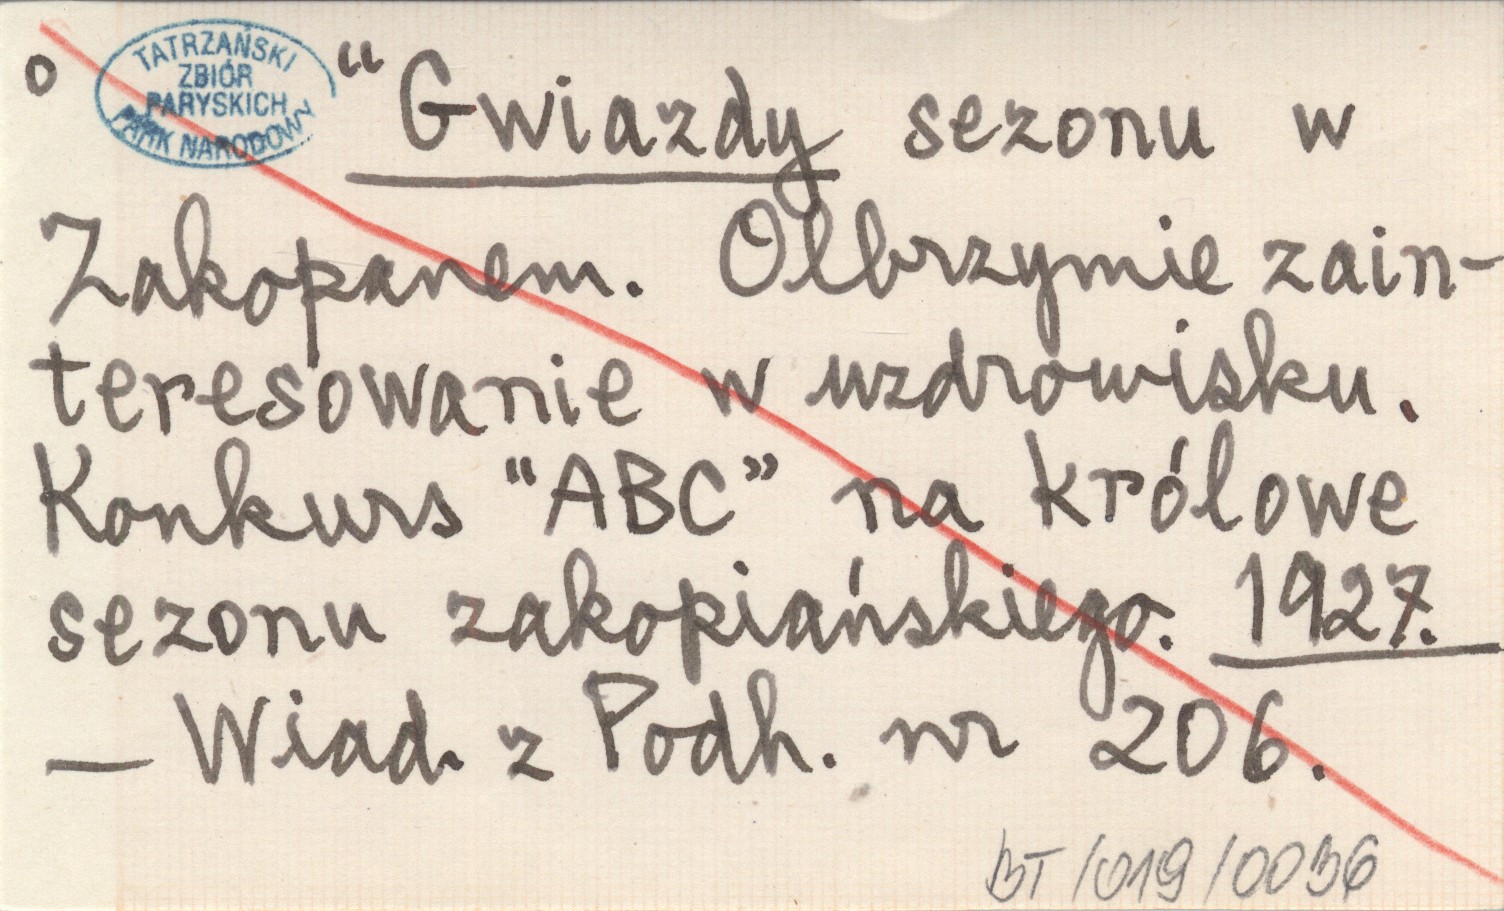 o
TATRZAŃSKI
ZBIÓR
PARYSKICH
PARK NARODOWY
“Gwiazdy sezonu w
Zakopanem. Olbrzymie zain-
teresowanie w uzdrowisku.
Konkurs “ABC” na królowe
sezonu zakopiańskiego. 1927.
— Wiad. z Podh. nr 206.
BT/019/0036